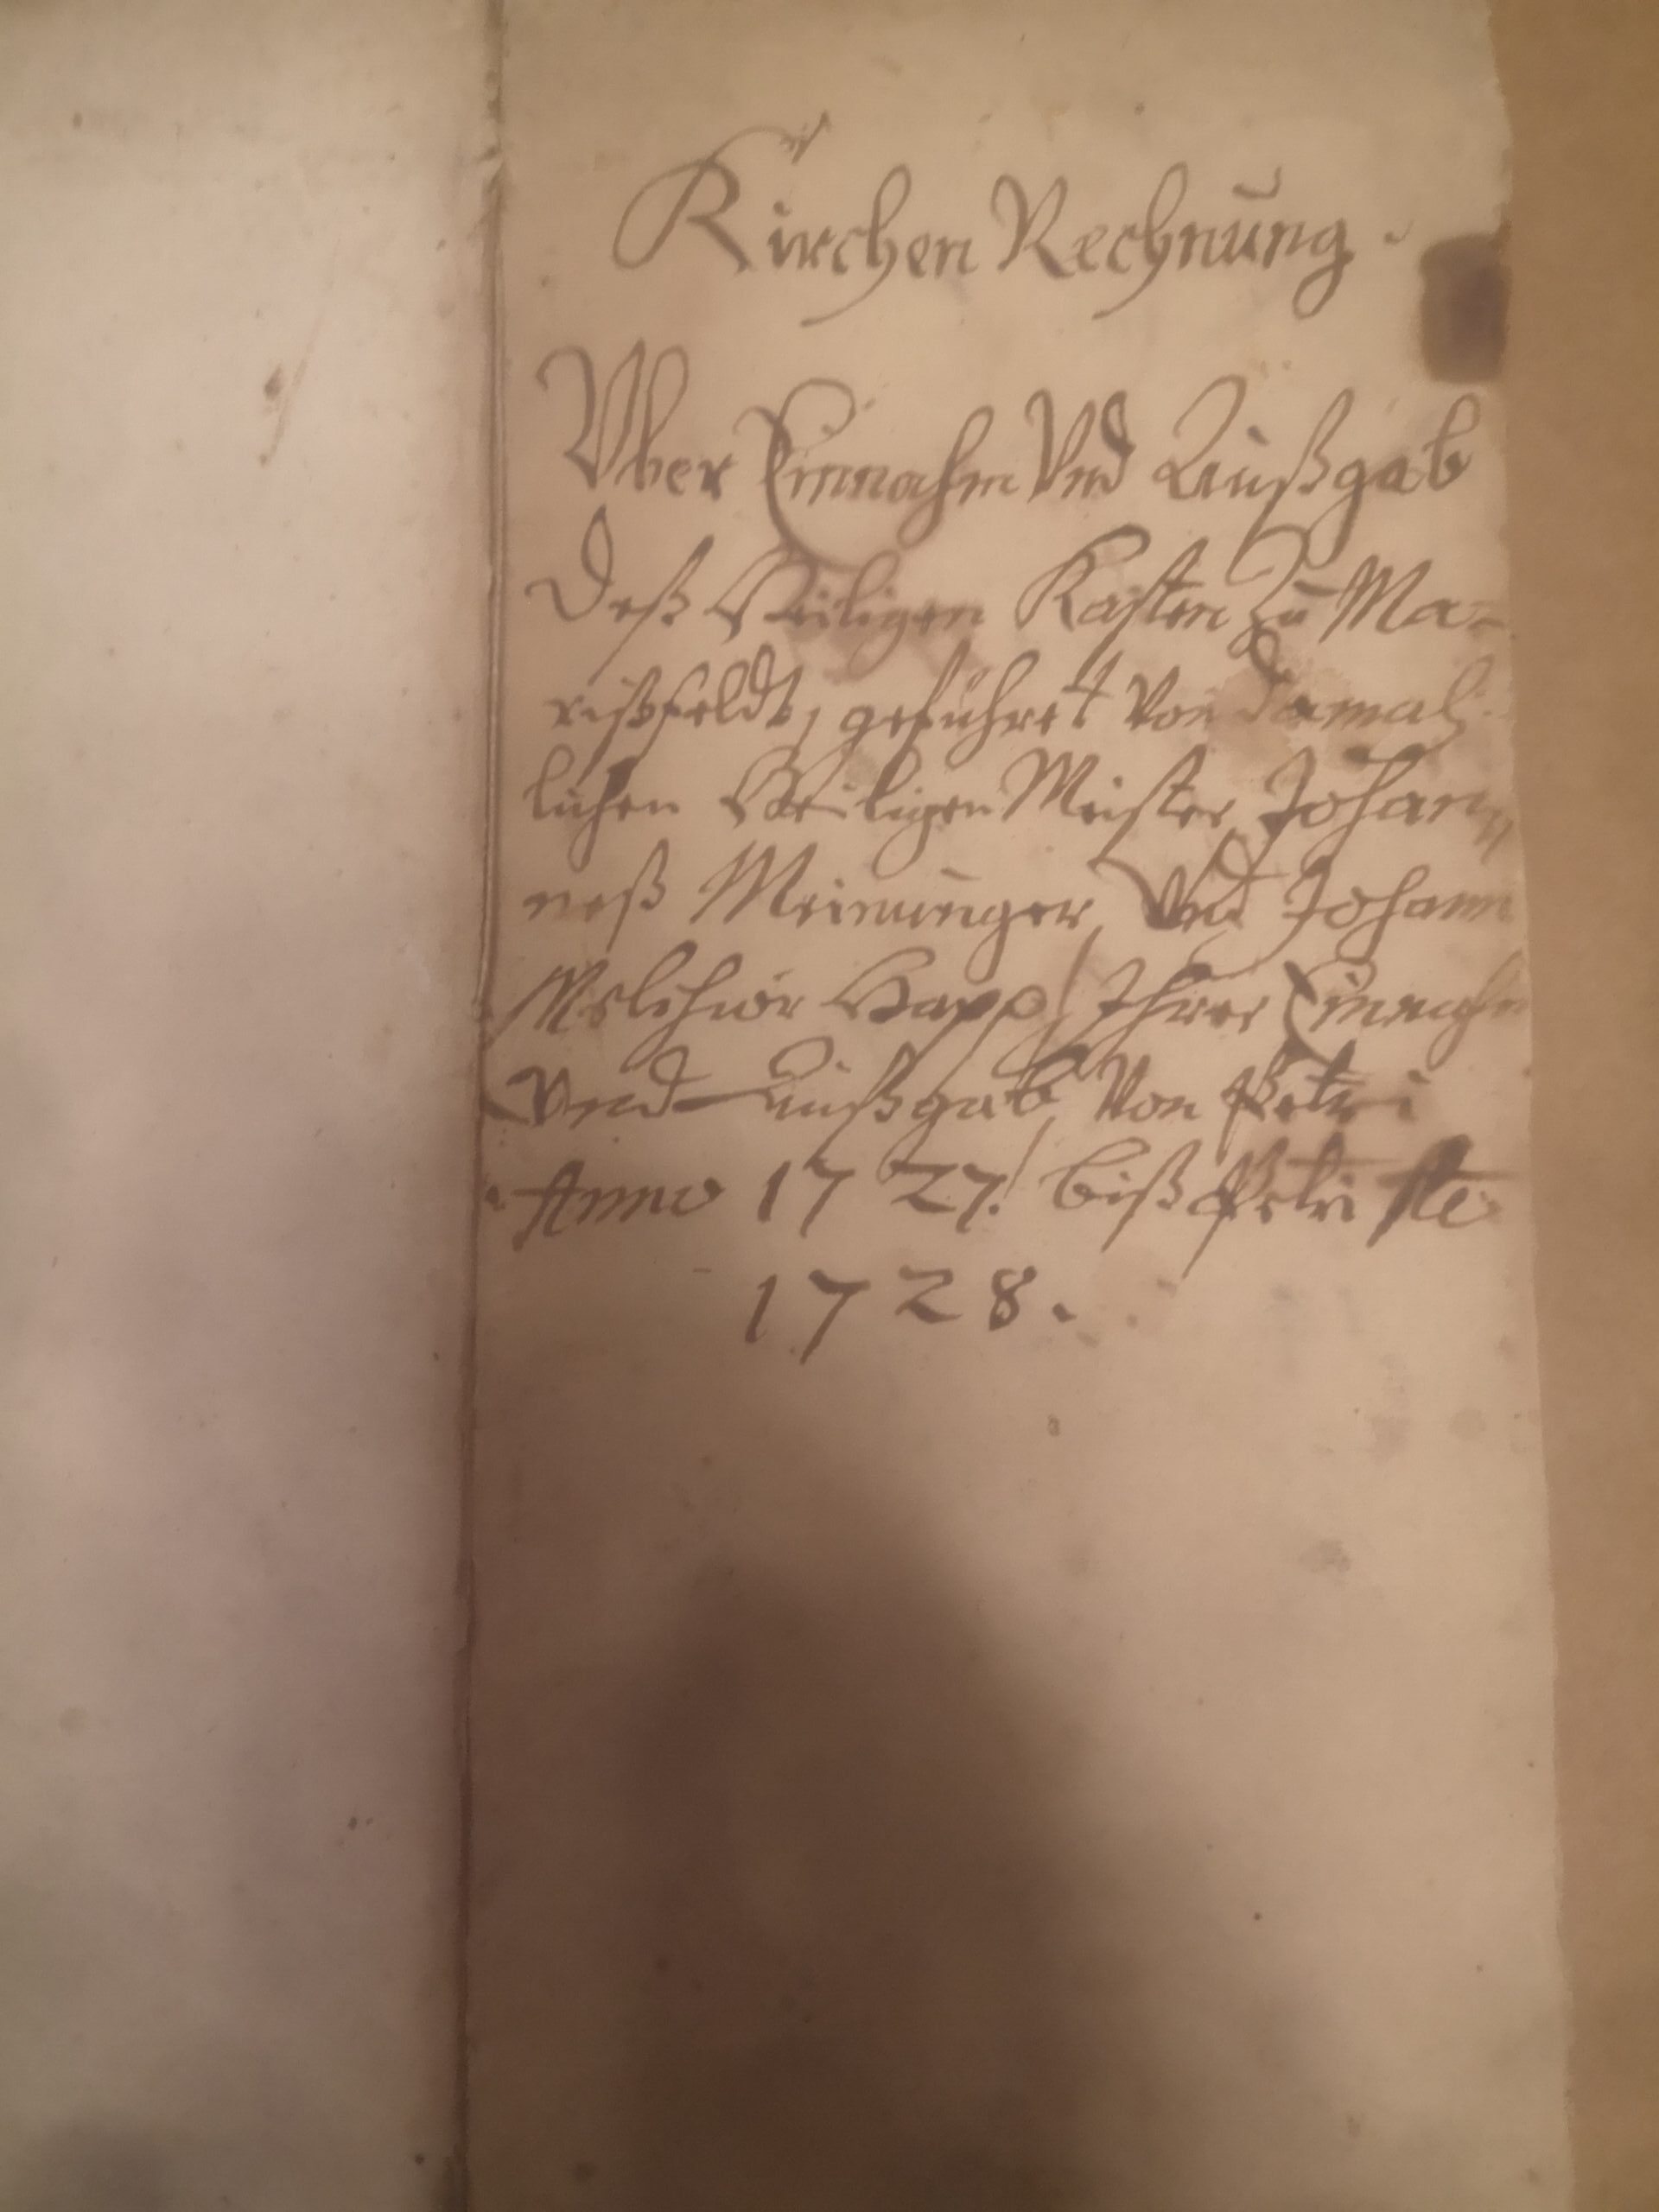 Kirchen Rechnung.
Vber Einnahm Vnd Außgab
Deß Heiligen Kasten Zu Ma-
rißfeldt, geführet Von damah-
lichen Heiligen Meister Johan
neß Meinunger, Vnd Johann
Melchior Happ / Ihrer Einnahm
Vnd Außgab, Von Petri
Anno 1727. biß Petri
1728.